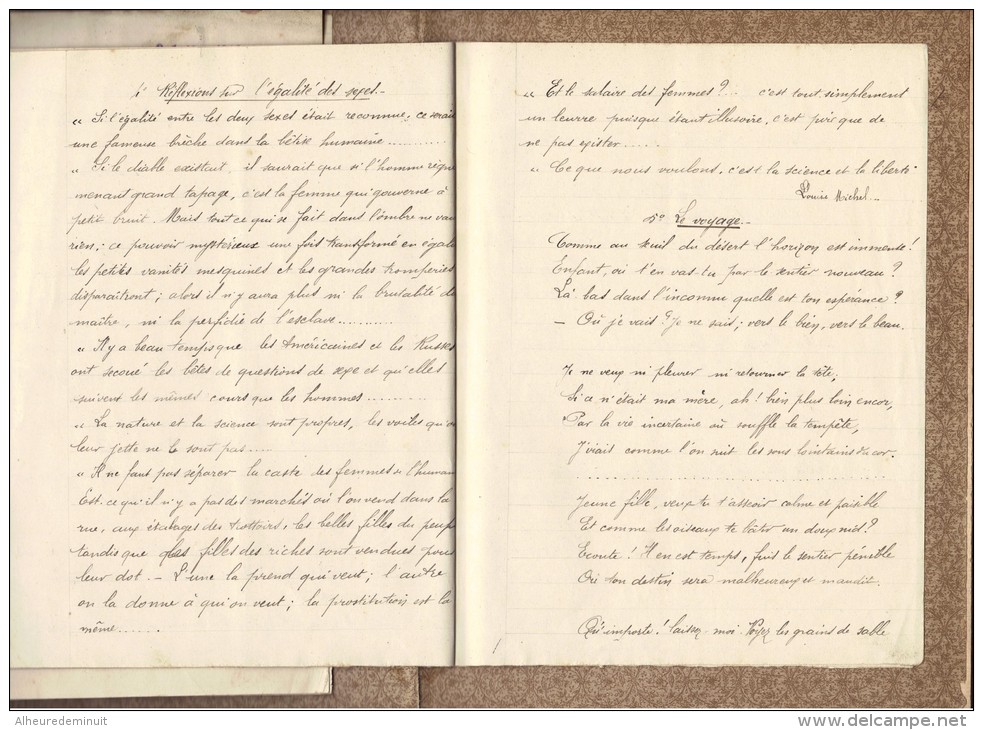 4° Réflexions sur l'égalité des sexes.-
« Si l'égalité entre les deux sexes était reconnue, ce serait
une fameuse brèche dans la bêtise humaine............
« Si le diable existait, il saurait que si l'homme règne
menant grand tapage, c'est la femme qui gouverne à
petit bruit. Mais tout ce qui se fait dans l'ombre ne vau
rien; ce pouvoir mystérieux une fois transformé en égale
les petites vanités mesquines et les grandes tromperies
disparaîtront; alors il n'y aura plus ni la brutalité du
maître, ni la perfidie de l'esclave...........
« Il y a beau temps que les Américaines et les Russes
ont secoué les bêtes de questions de sexe et qu'elles
suivent les mêmes cours que les hommes.........
« La nature et la science sont propres, les voiles qu'on
leur jette ne le sont pas.....
« Il ne faut pas séparer la caste des femmes de l'human
Est-ce qu'il n'y a pas des marchés où l'on vend dans la
rue, aux étalages des trottoirs, les belles filles du peup
tandis que les filles des riches sont vendues pour
leur dot. - L'une la prend qui veut; l'autre
on la donne à qui on veut; la prostitution est la
même.......
« Et le salaire des femmes?... c'est tout simplement
un leurre puisque étant illusoire, c'est pire que de
ne pas exister......
« Ce que nous voulons, c'est la science et la liberté
Louise Michel.-
5° Le voyage.-
Comme au seuil du désert l'horizon est immense!
Enfant, où t'en vas-tu par le sentier nouveau?
Là-bas dans l'inconnu quelle est ton espérance?
- Où je vais? Je ne sais; vers le bien, vers le beau.
Je ne veux ni pleurer ni retourner la tête;
Si ce n'était ma mère, ah! bien plus loin encor,
Par la vie incertaine où souffle la tempête,
J'irais comme l'on suit les sons lointains du cor.
........................................
Jeune fille, veux-tu t'asseoir calme et paisible
Et comme les oiseaux te bâtir un doux nid?
Ecoute! Il en est temps, fuis le sentier pénible
Où ton destin sera malheureux et maudit.
Qu'importe! laissez-moi. Voyez les grains de sable
Alheuredeminuit
www.delcampe.net